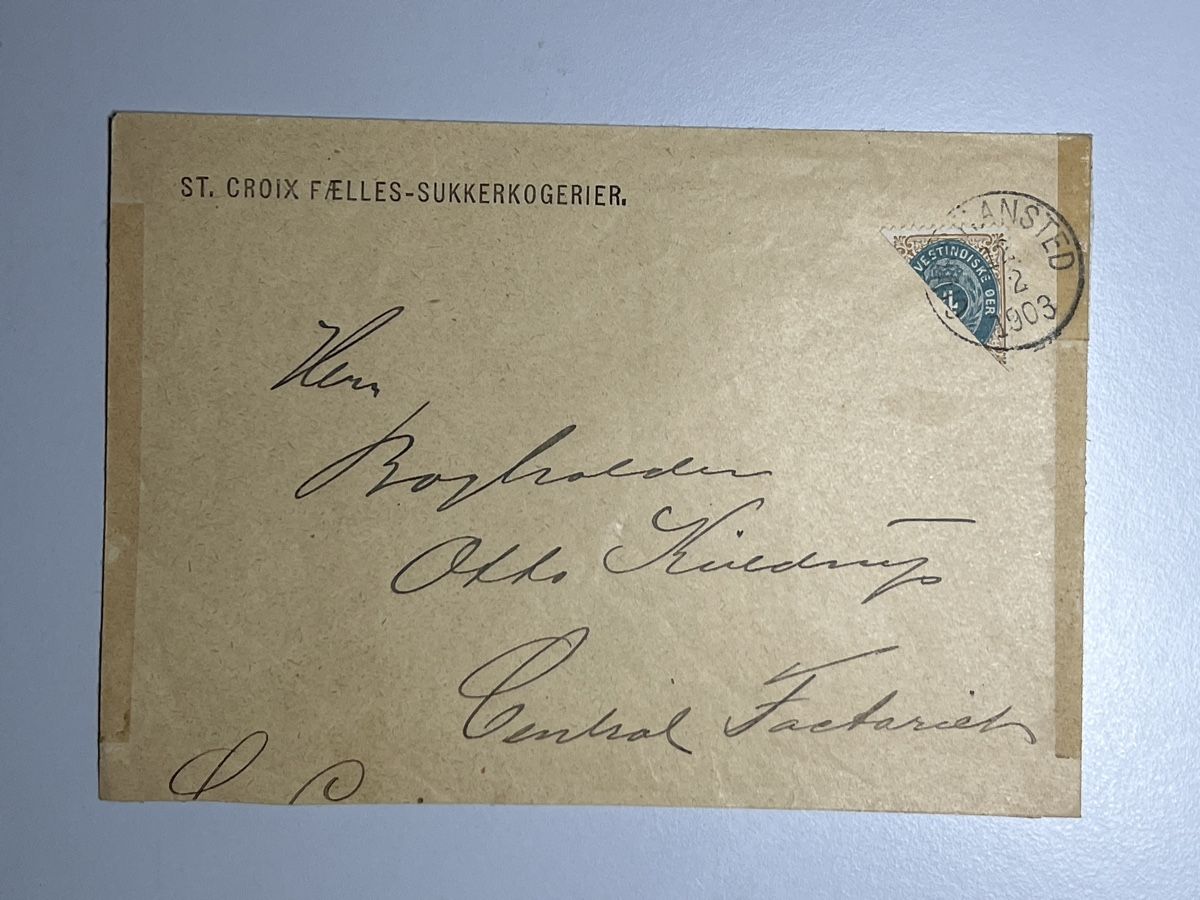 ST. CROIX FÆLLES-SUKKERKOGERIER.
ANSTED
2
1903
VESTINDISKE ØER
Herr
Bogholder
Otto Kieldrup
Central Factoriet